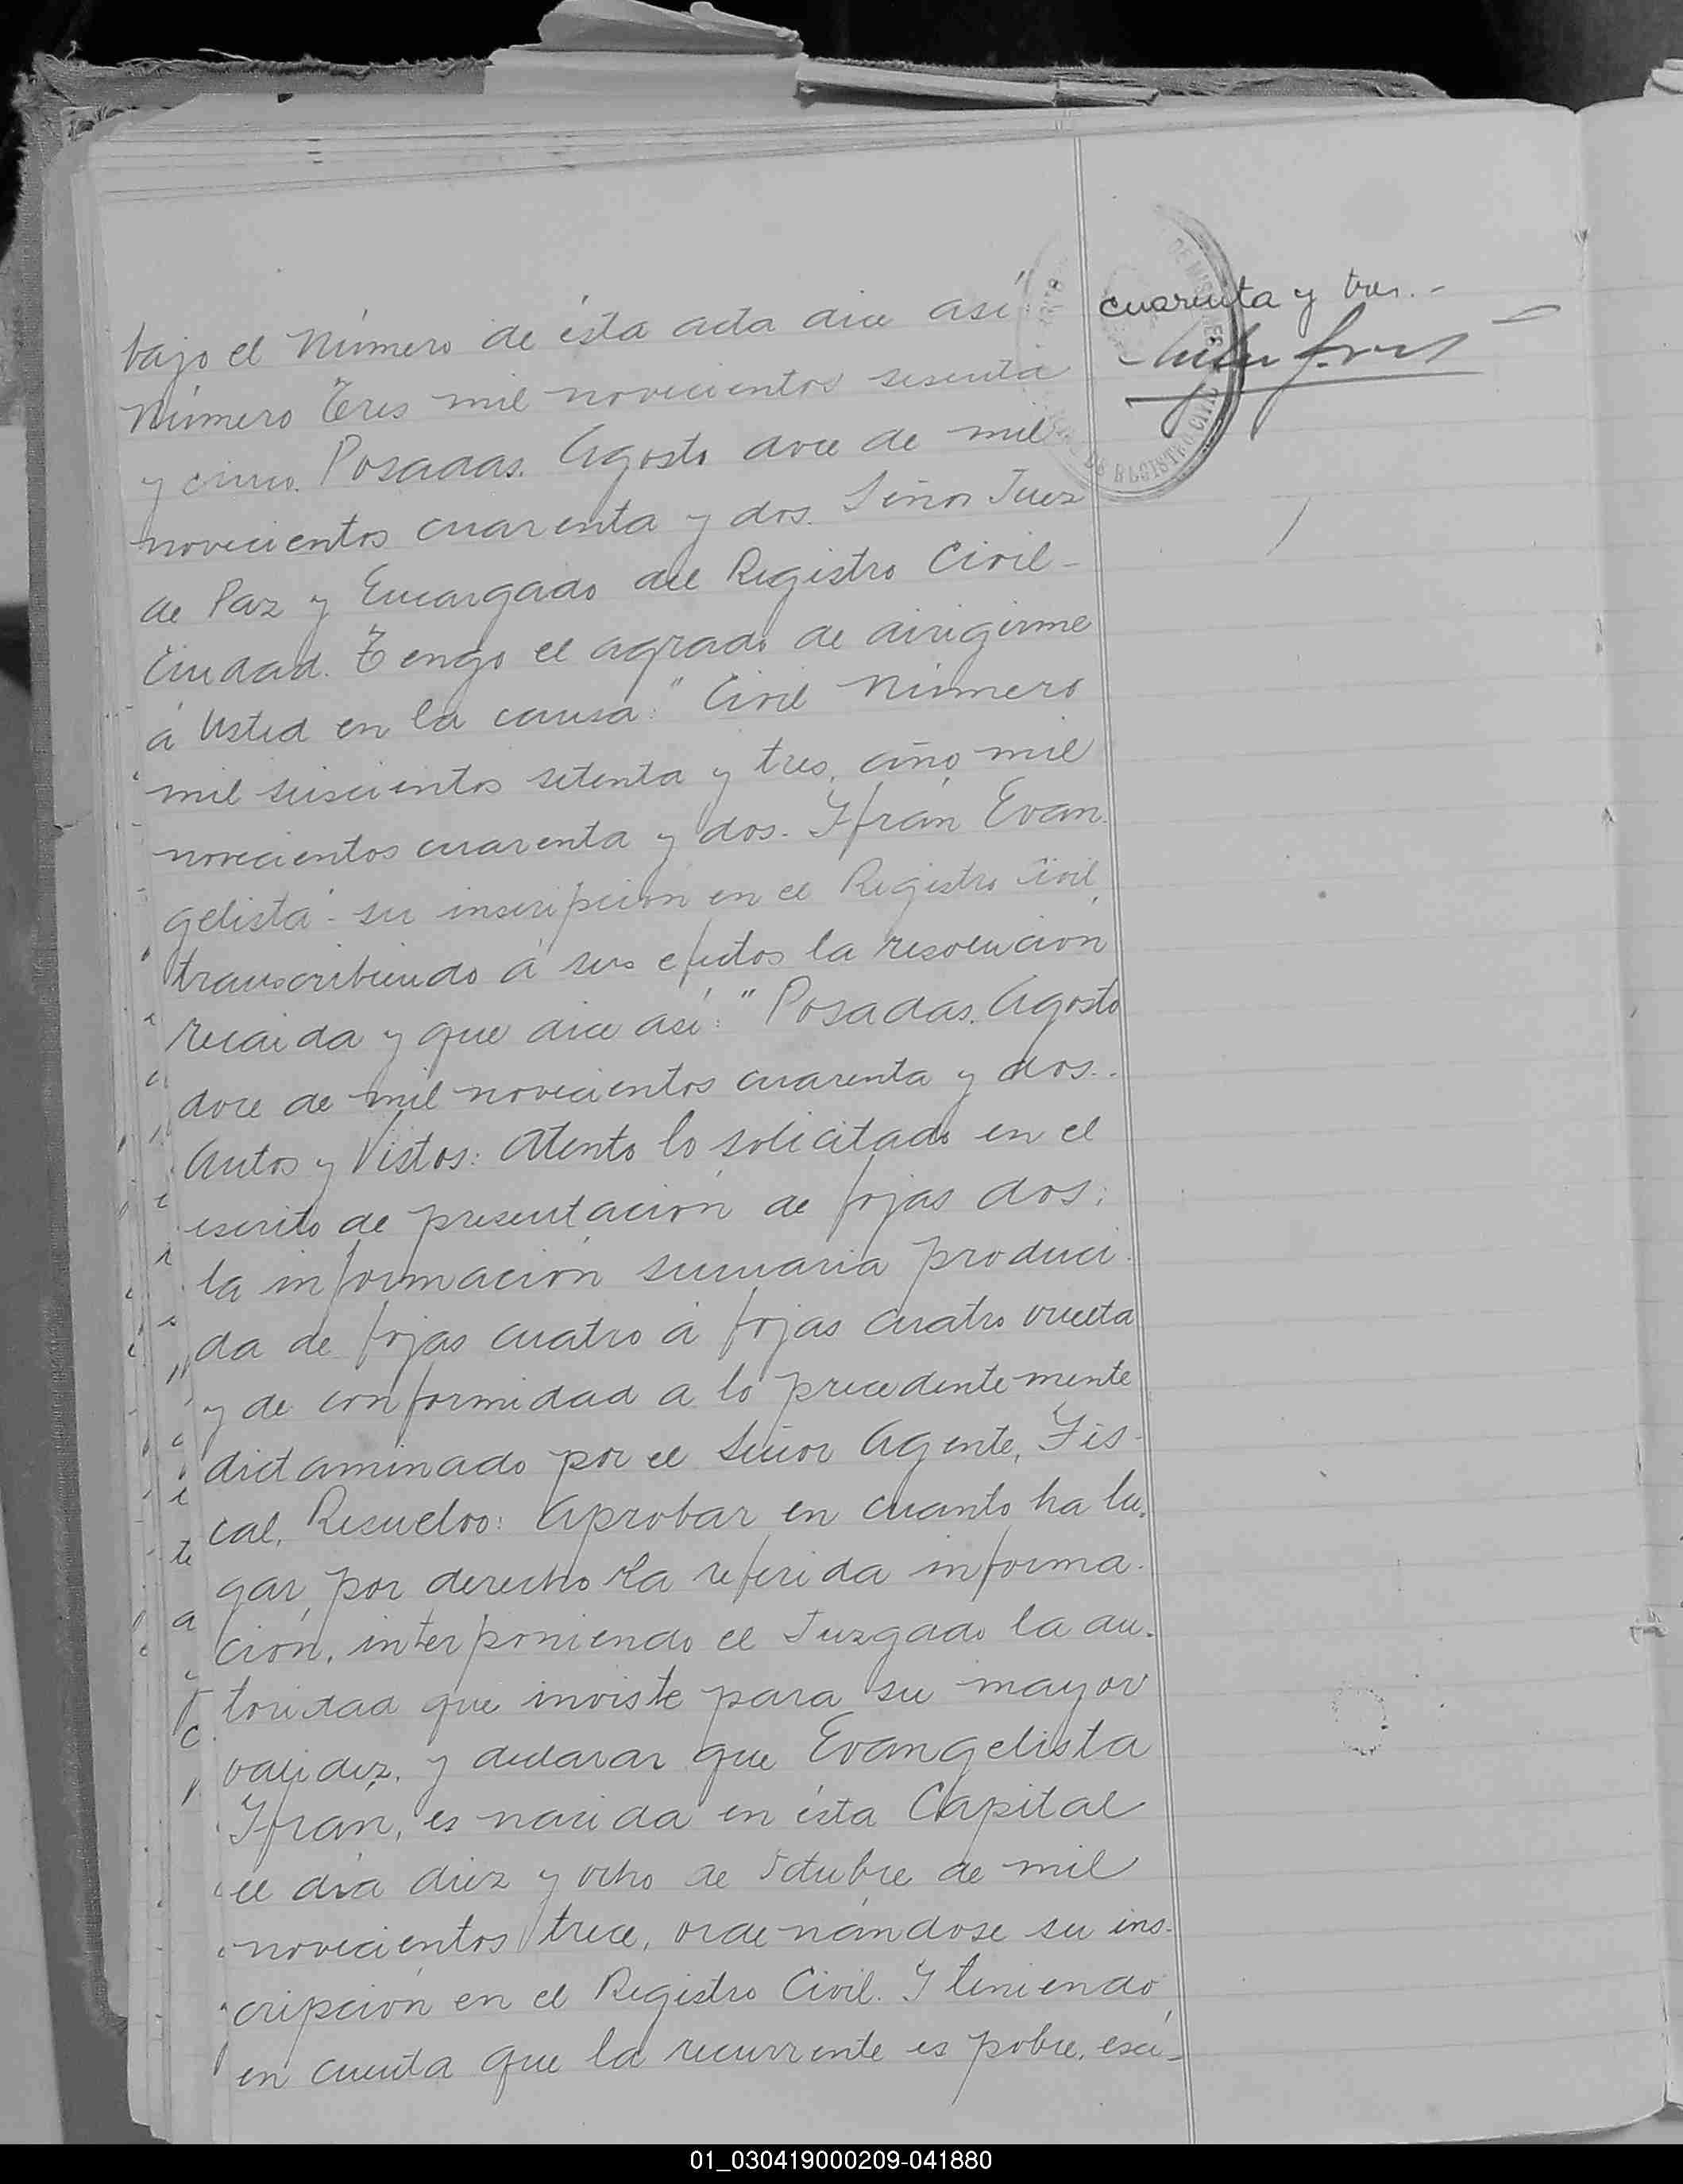 cuarenta y tres.-
bajo el Número de ésta acta dice así:"
Número Tres mil novecientos sesenta
y cinco. Posadas. Agosto doce de mil
novecientos cuarenta y dos. Señor Juez
de Paz y Encargado del Registro Civil-
Ciudad. Tengo el agrado de dirigirme
á Usted en la causa:" Civil Número
mil seiscientos setenta y tres, año mil
novecientos cuarenta y dos.- Ifrán Evan-
gelista- su inscripción en el Registro Civil,
transcribiendo á sus efectos la resolución
recaida y que dice así: "Posadas. Agosto
doce de mil novecientos cuarenta y dos.-
Autos y Vistos: Atento lo solicitado en el
escrito de presentación de fojas dos;
la información sumaria produci-
da de fojas cuatro á fojas cuatro vuelta
y de conformidad a lo precedentemente
dictaminado por el Señor Agente, Fis-
cal, Resuelvo: Aprobar en cuanto ha lu-
gar, por derecho la referida informa-
ción, interponiendo el Juzgado la au-
toridad que inviste para su mayor
validez, y declarar que Evangelista
Ifrán, es nacida en ésta Capital
el día diez y ocho de Octubre de mil
novecientos trece, ordenándose su ins-
cripción en el Registro Civil. Y teniendo
en cuenta que la recurrente es pobre, exí-
REGISTRO CIVIL
01_030419000209-041880